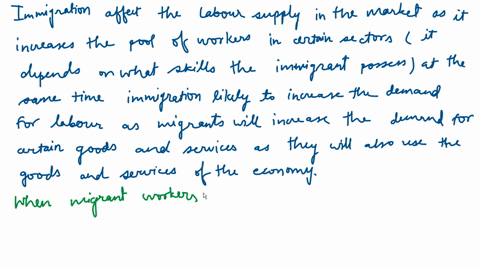 Immigration affect the labour supply in the market as it
increases the pool of workers in certain sectors ( it
depends on what skills the immigrant possess) at the
same time immigration likely to increase the demand
for labour as migrants will increase the demand for
certain goods and services as they will also use the
goods and services of the economy.
When migrant workers